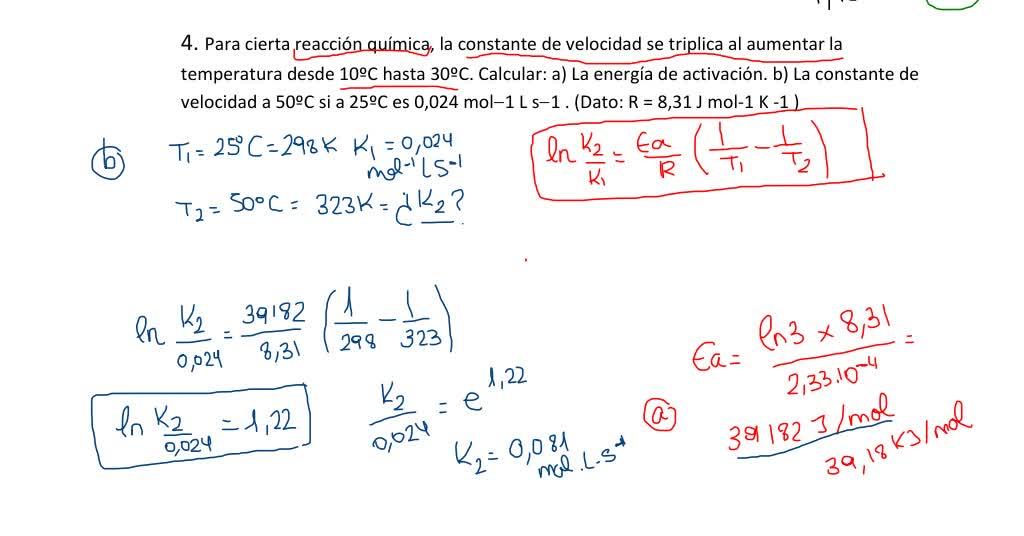 4. Para cierta reacción química, la constante de velocidad se triplica al aumentar la
temperatura desde 10ºC hasta 30ºC. Calcular: a) La energía de activación. b) La constante de
velocidad a 50ºC si a 25ºC es 0,024 mol−1 L s−1 . (Dato: R = 8,31 J mol-1 K -1 )
b) T₁ = 25°C = 298K K₁ = 0,024
mol⁻¹ L S⁻¹
T₂ = 50°C = 323K = ¿K₂?
ln K₂/K₁ = Ea/R (1/T₁ − 1/T₂)
ln K₂/0,024 = 39182/8,31 (1/298 − 1/323)
ln K₂/0,024 = 1,22
K₂/0,024 = e^1,22
K₂ = 0,081
mol⁻¹.L.S⁻¹
a) Ea = ln3 x 8,31 / 2,33.10⁻⁴ =
39182 J/mol
39,18 KJ/mol